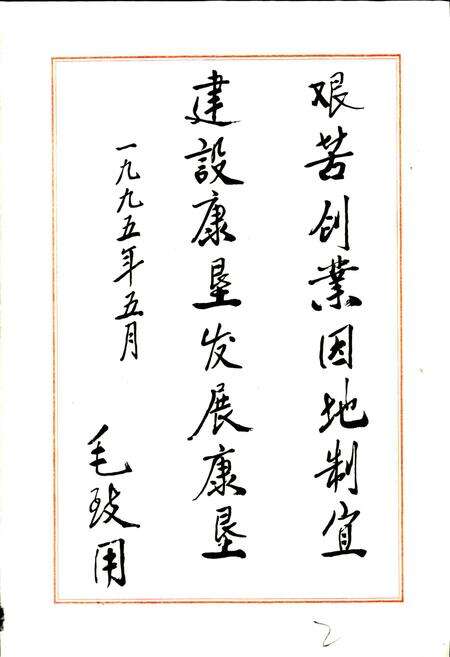 艰苦创業因地制宜
建設康垦发展康垦
一九九五年五月
毛致用
2